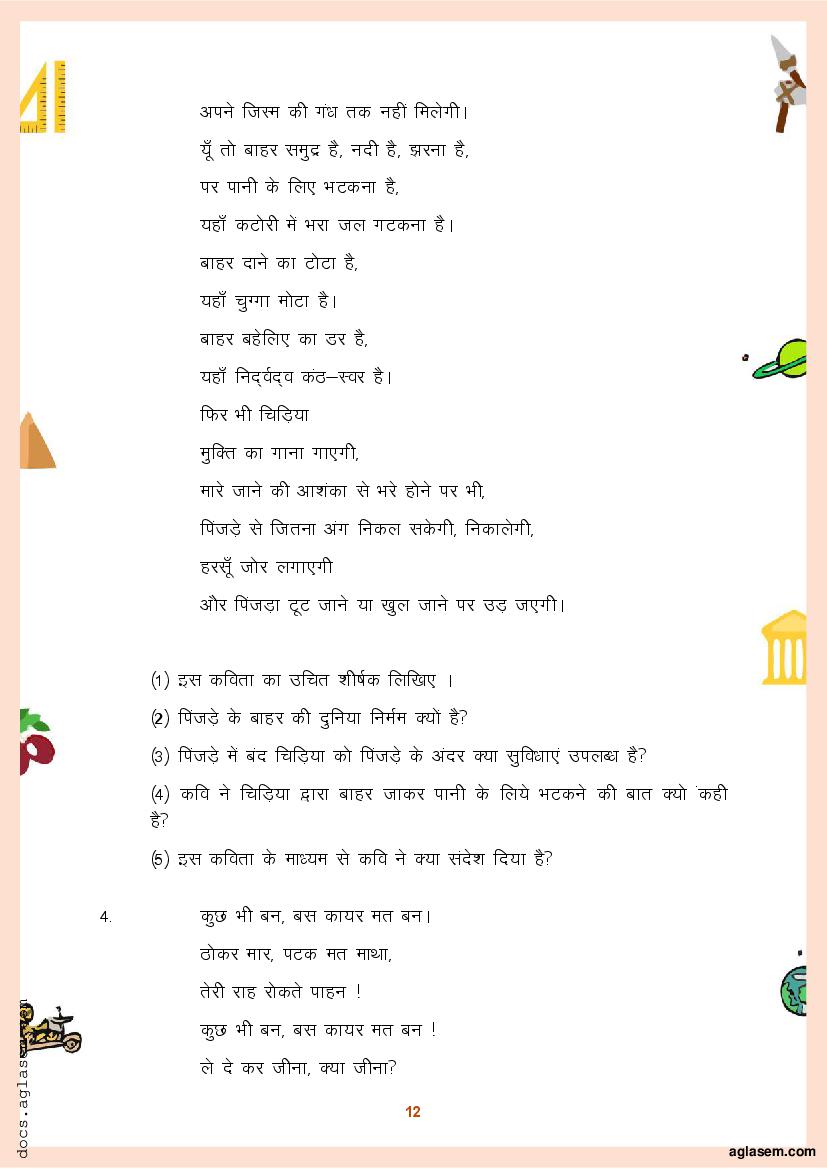 अपने जिस्म की गंध तक नहीं मिलेगी।
यूँ तो बाहर समुद्र है, नदी है, झरना है,
पर पानी के लिए भटकना है,
यहाँ कटोरी में भरा जल गटकना है।
बाहर दाने का टोटा है,
यहाँ चुग्गा मोटा है।
बाहर बहेलिए का डर है,
यहाँ निद्र्वद्व कंठ–स्वर है।
फिर भी चिड़िया
मुक्ति का गाना गाएगी,
मारे जाने की आशंका से भरे होने पर भी,
पिंजड़े से जितना अंग निकल सकेगी, निकालेगी,
हरसूँ जोर लगाएगी
और पिंजड़ा टूट जाने या खुल जाने पर उड़ जएगी।
(1) इस कविता का उचित शीर्षक लिखिए ।
(2) पिंजड़े के बाहर की दुनिया निर्मम क्यों है?
(3) पिंजड़े में बंद चिड़िया को पिंजड़े के अंदर क्या सुविधाएं उपलब्ध है?
(4) कवि ने चिड़िया द्वारा बाहर जाकर पानी के लिये भटकने की बात क्यों कही
है?
(5) इस कविता के माध्यम से कवि ने क्या संदेश दिया है?
4. कुछ भी बन, बस कायर मत बन।
ठोकर मार, पटक मत माथा,
तेरी राह रोकते पाहन !
कुछ भी बन, बस कायर मत बन !
ले दे कर जीना, क्या जीना?
12
docs.aglasem
aglasem.com